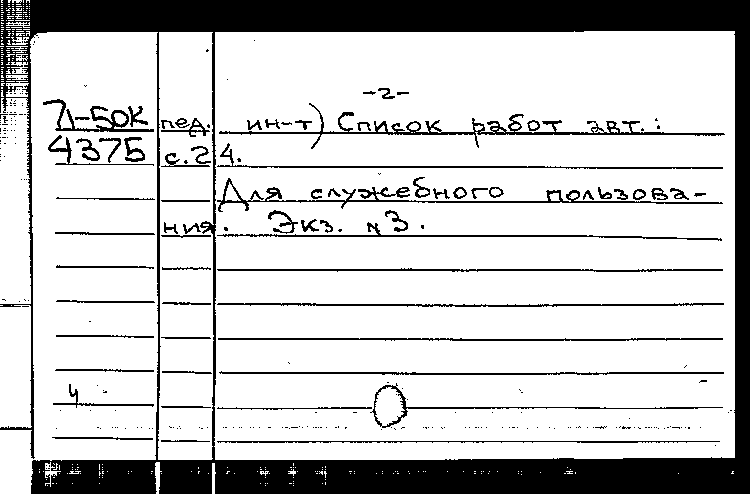 -2-
Д-50К пед. ин-т) Список работ авт.:
4375 с.24.
Для служебного пользова-
ния. Экз. №3.
4